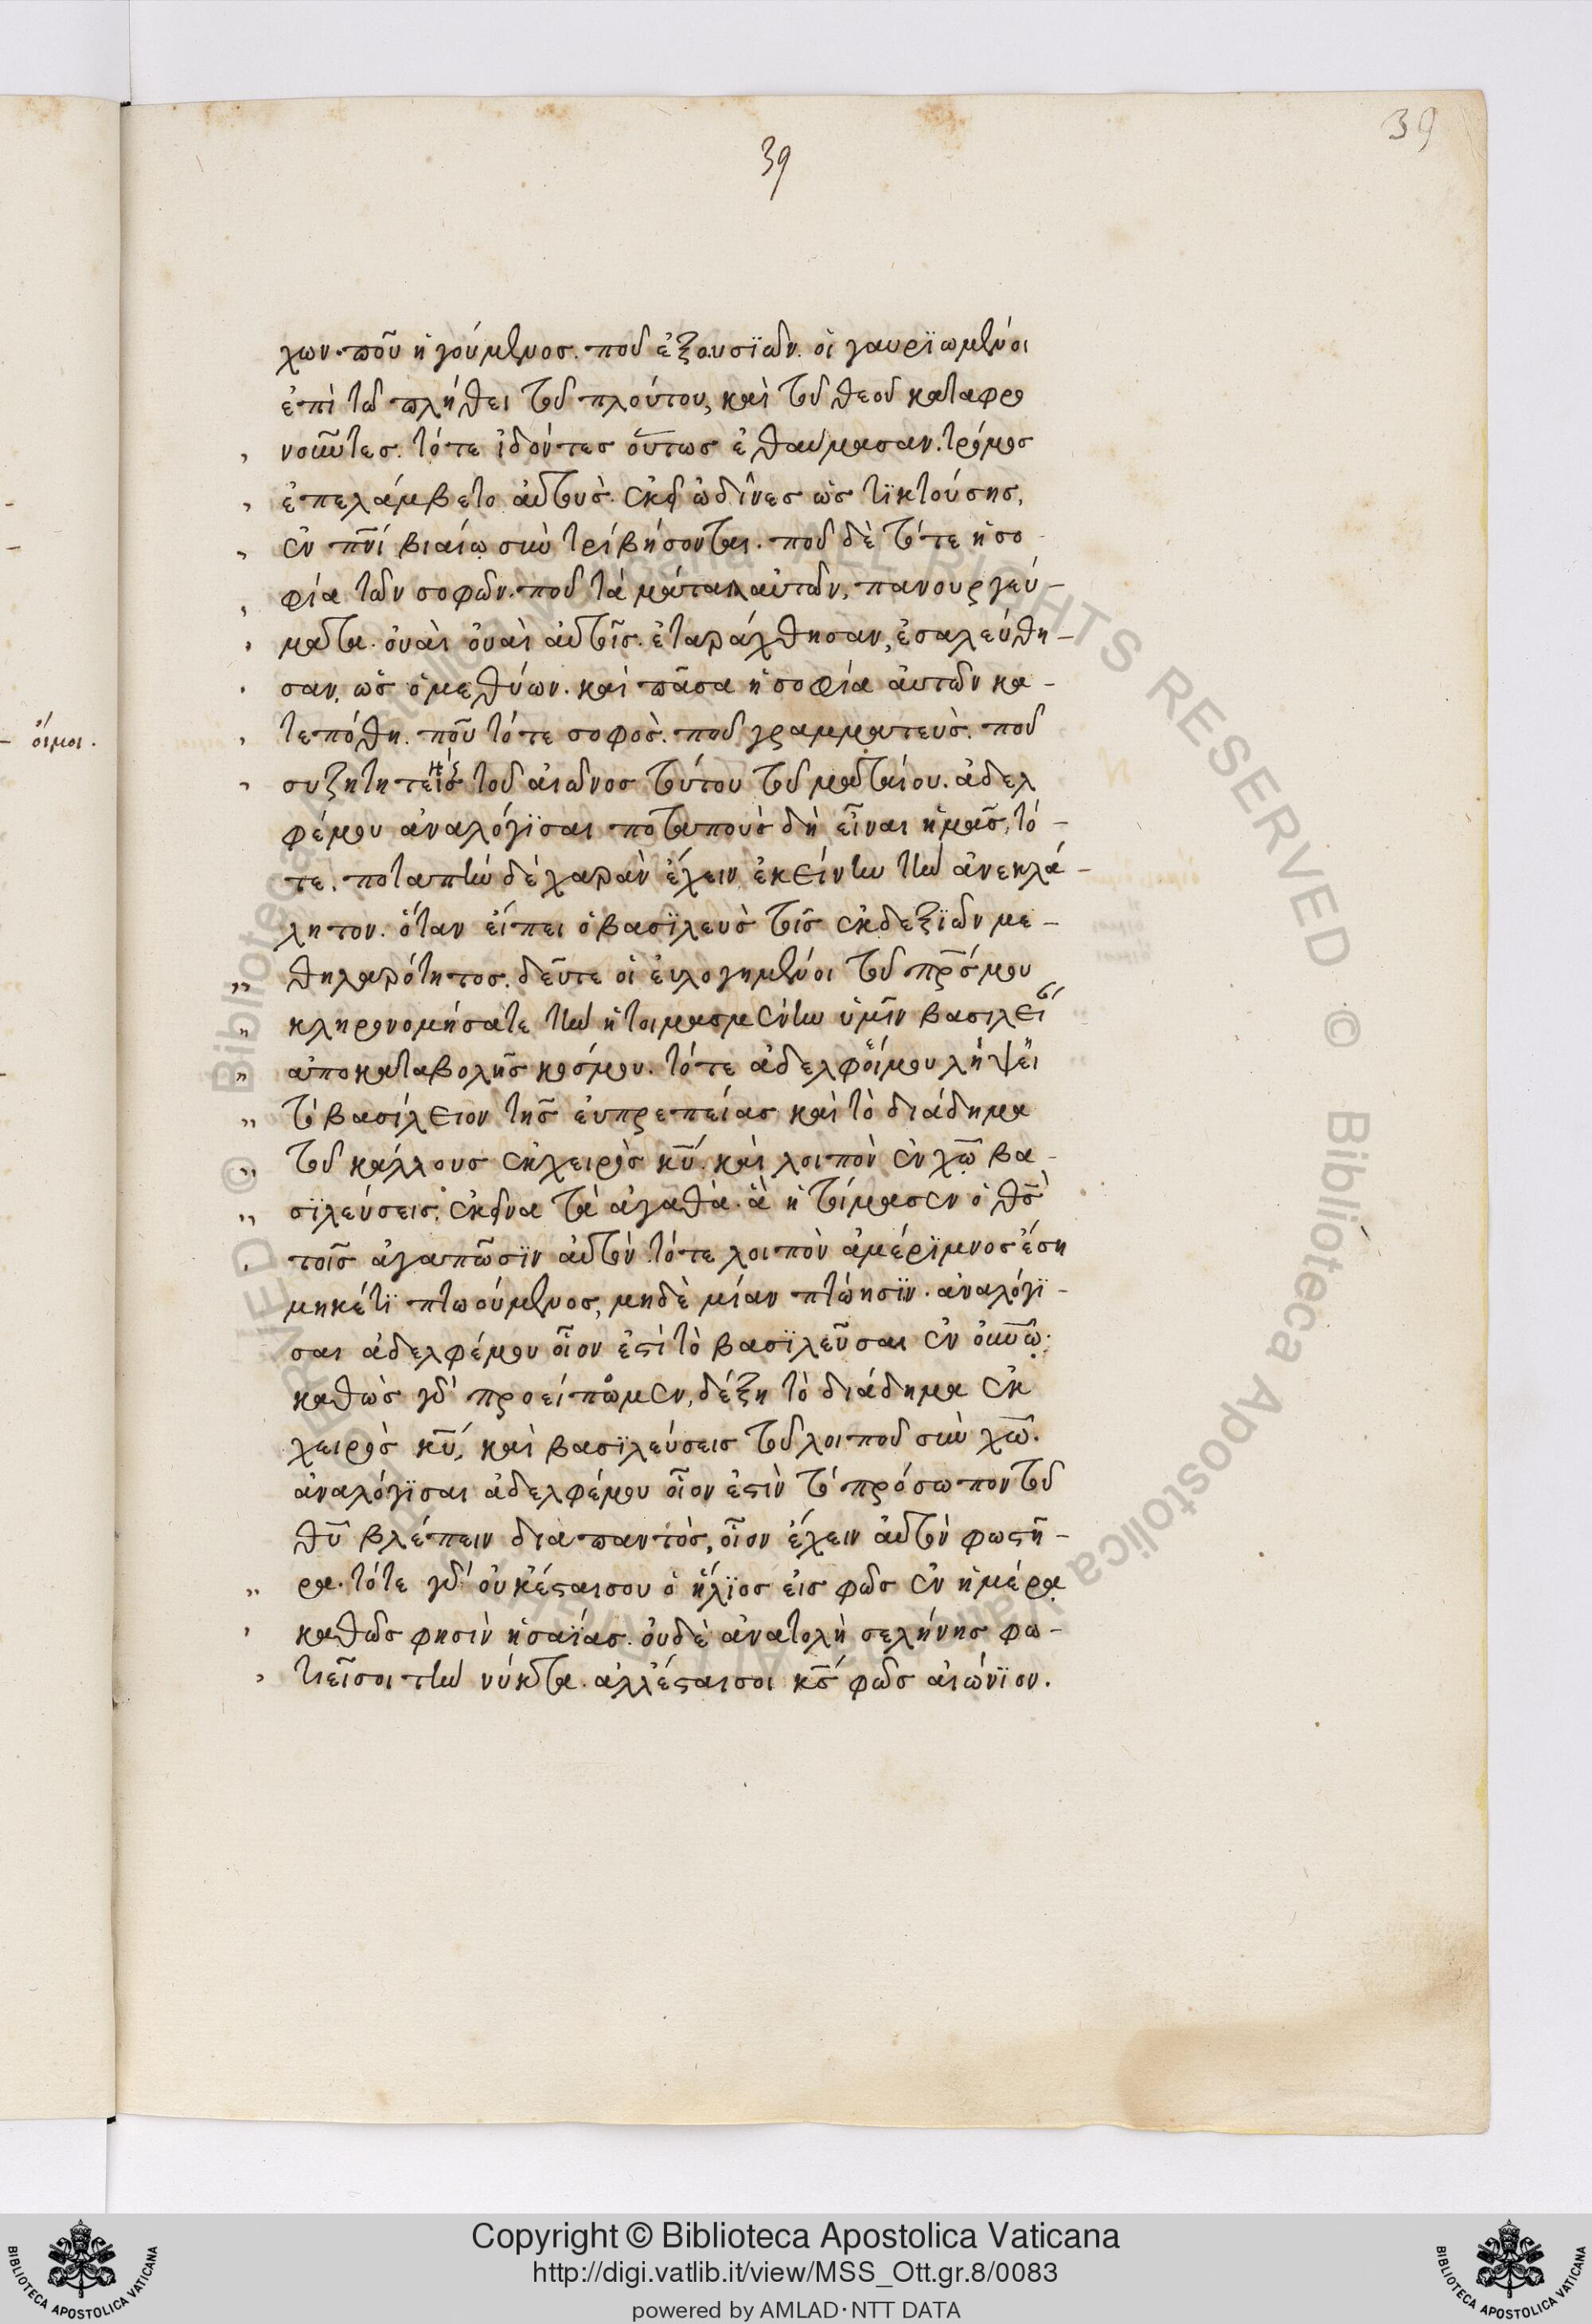 39
39
χων. ποῦ ἡγούμενος. ποῦ ἐξουσϊῶν. οἱ γαυρϊωμένοι
ἐπὶ τῶ πλήθει τοῦ πλούτου, καὶ τοῦ θεοῦ καταφρο
νοῦντες. τότε ἰδόντες οὕτως ἐθαύμασαν. τρόμος
ἐπελάμβετο αὐτοὺς. ἐκεῖ ὠδῖνες ὡς τϊκτούσης,
ἐν πν̅ί βιαίω συντρίβήσονται. ποῦ δὲ τότε ἡ σο
φία τῶν σοφῶν. ποῦ τὰ μάταια αὐτῶν, πανουργεύ-
ματα. οὐαὶ οὐαὶ αὐτοῖς. ἐταράχθησαν, ἐσαλεύθη-
σαν, ὡς ὁ μεθύων. καὶ πᾶσα ἡ σοφία αὐτῶν κα-
τεπόθη. ποῦ τότε σοφὸς. ποῦ γραμματεὺς. ποῦ
συζητητεὶς τοῦ αἰῶνος τούτου τοῦ ματαίου. ἀδελ
φέμου ἀναλόγϊσαι ποταποὺς δὴ εἶναι ἡμᾶς, τό-
τε. ποταπὴν δὲ χαρὰν ἔχειν ἐκείνην τὴν ἀνεκλά-
λητον. ὅταν εἴπει ὁ βασϊλεὺς τοῖς ἐκδεξϊῶν με-
θηλαρότητος. δεῦτε οἱ εὐλογημένοι τοῦ πρ̅ς μου
κληρονομήσατε τὴν ἡτοιμασμένην ὑμῖν βασιλεί
ἀποκαταβολῆς κόσμου. τότε ἀδελφοίμου λήψει
τὸ βασίλειον τῆς εὐπρεπείας καὶ τὸ διάδημα
τοῦ κάλλους ἐκχειρὸς κ̅υ. καὶ λοιπὸν ἐν χ̅ω βα-
σϊλεύσεις, ἐκεῖνα τὰ ἀγαθὰ. ἃ ἡτοίμασεν ὁ θ̅ς
τοῖς ἀγαπῶσϊν αὐτὸν. τότε λοιπὸν ἀμέρϊμνος ἔση
μηκέτϊ πτωούμενος, μηδὲ μίαν πτώησϊν. ἀναλόγϊ-
σαι ἀδελφέμου οἷον ἐστὶ τὸ βασϊλεῦσαι ἐν οὐν̅ῶ.
καθὼς γὰρ προείπωμεν, δέξη τὸ διάδημα ἐκ
χειρὸς κ̅υ, καὶ βασϊλεύσεις τοῦ λοιποῦ σὺν χ̅ω.
ἀναλόγϊσαι ἀδελφέμου οἷον ἐστὶν τὸ πρόσωπον τοῦ
θ̅υ βλέπειν διαπαντὸς, οἷον ἔχειν αὐτὸν φωστῆ-
ρα. τότε γὰρ οὐκέσταισου ὁ ἥλϊος εἰς φῶς ἐν ἡμέρα
καθῶς φησὶν ἡσαΐας. οὐδὲ ἀνατολὴ σελήνης φω-
τιεῖσοι τὴν νύκτα. ἀλλέσταισοι κ̅ς φῶς αἰώνϊον.
οἴμοι.
Copyright © Biblioteca Apostolica Vaticana
http://digi.vatlib.it/view/MSS_Ott.gr.8/0083
powered by AMLAD·NTT DATA